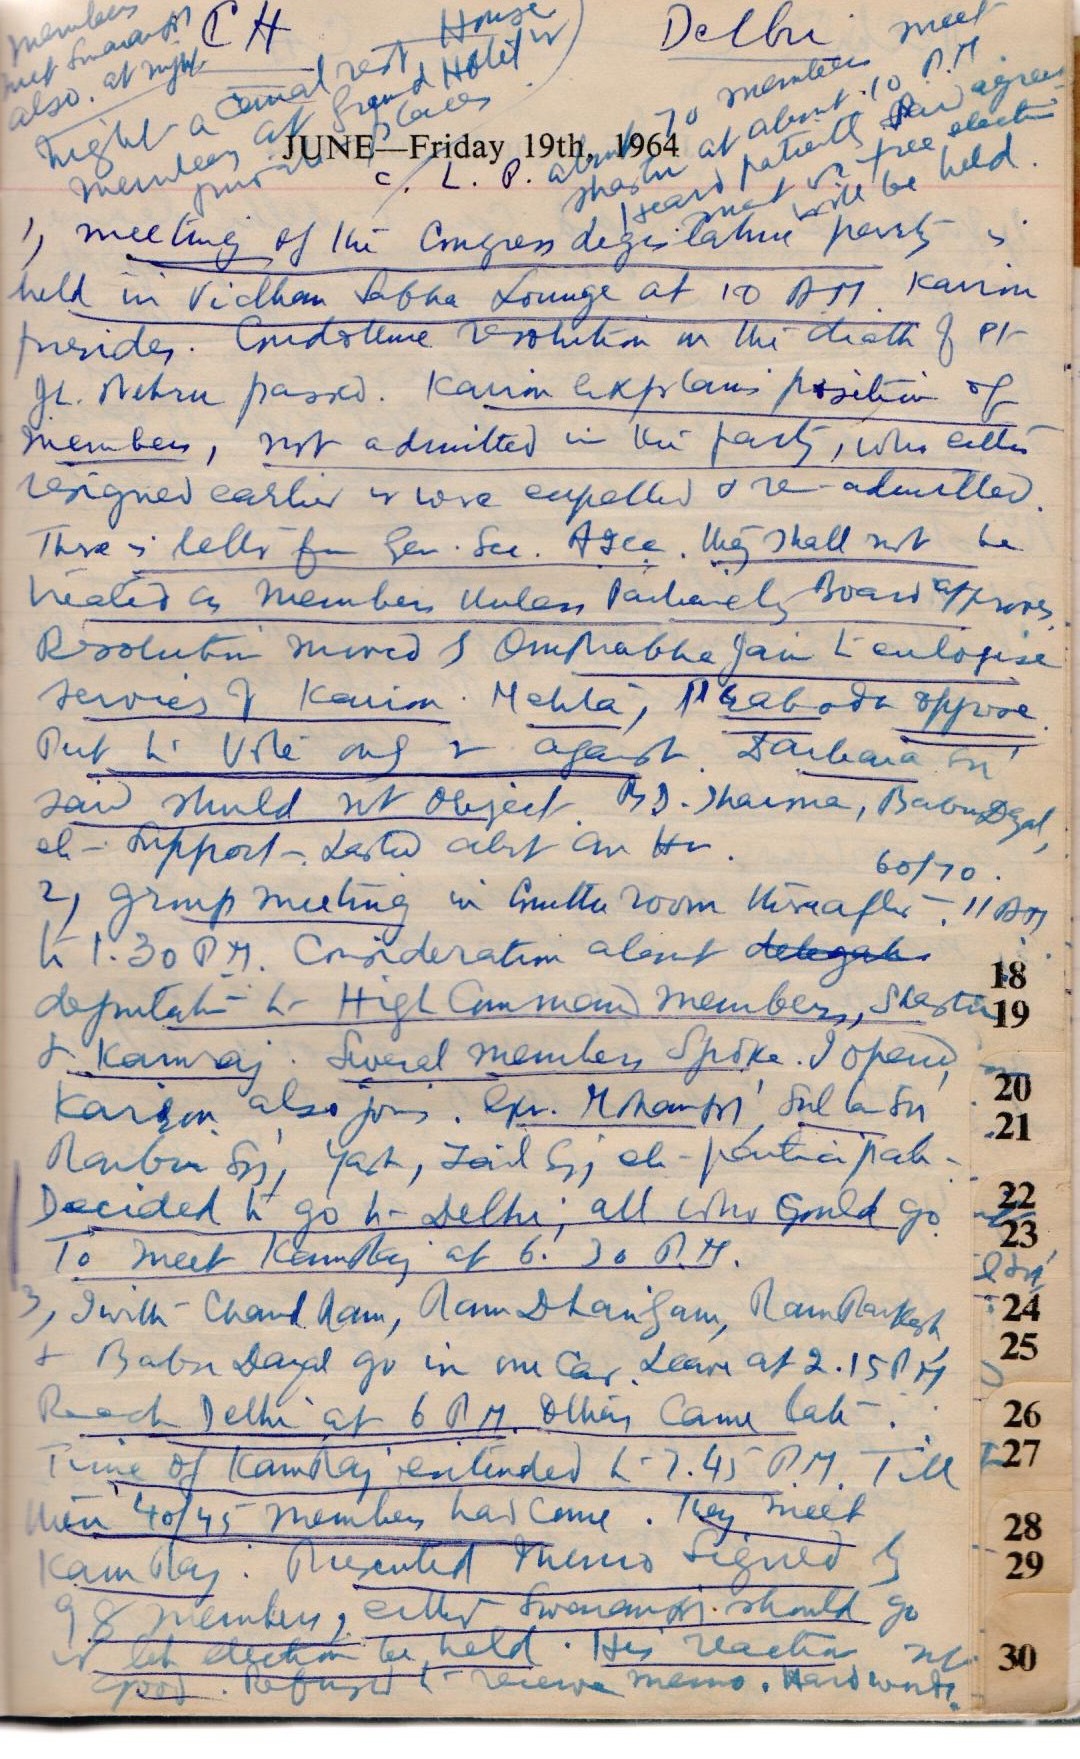 members
meet Swaransingh
also. at night.
CH
Delhi
Night a Canal rest House
members at Grand Hotel or
private places
meet
about 70 members
Shastri at about 10 P.M
Heard patiently and agreed
that free election
will be held.
JUNE—Friday 19th, 1964
C. L. P.
1, meeting of the Congress Legislature party is
held in Vidhan Sabha Lounge at 10 AM. Kairon
presides. Condolence resolution on the death of Pt
JL. Nehru passed. Kairon explains position of
members, not admitted in the party, who either
resigned earlier or were expelled & re-admitted.
There is letter from Gen. Sec. AICC. they shall not be
treated as members unless Parliamentary Board approves.
Resolution moved by Om Prabha Jain to eulogise
services of Kairon. Mehta, Prabodh oppose.
Put to Vote only 2 against. Darbara Singh
said should not object. B.D. Sharma, Babu Dayal,
etc support. Lasted about an Hr.
60/70.
2, group meeting in Comttee room thereafter. 11 AM
to 1.30 P.M. Consideration about delegate
deputation to High Command members, Shastri
& Kamraj. Several members spoke. I opened,
Kairon also joins. Gen. Mohan Singh,
Ranbir Singh, Yash, Zail Singh etc participate.
Decided to go to Delhi, all who could go.
To meet KamRaj at 6.30 P.M.
3, I with Chand Ram, Ram Dhari Gaur, Ram Parkash
& Babu Dayal go in one Car. Leave at 2.15 PM
Reach Delhi at 6 P.M. Others came late.
Time of KamRaj extended to 7.45 P.M. Till
then 40/45 members had come. They meet
KamRaj. Presented memo signed by
98 members, either Swaransingh should go
or let election be held. His reaction not
good. Refused to receive memo. Hard words.
18
19
20
21
22
23
24
25
26
27
28
29
30